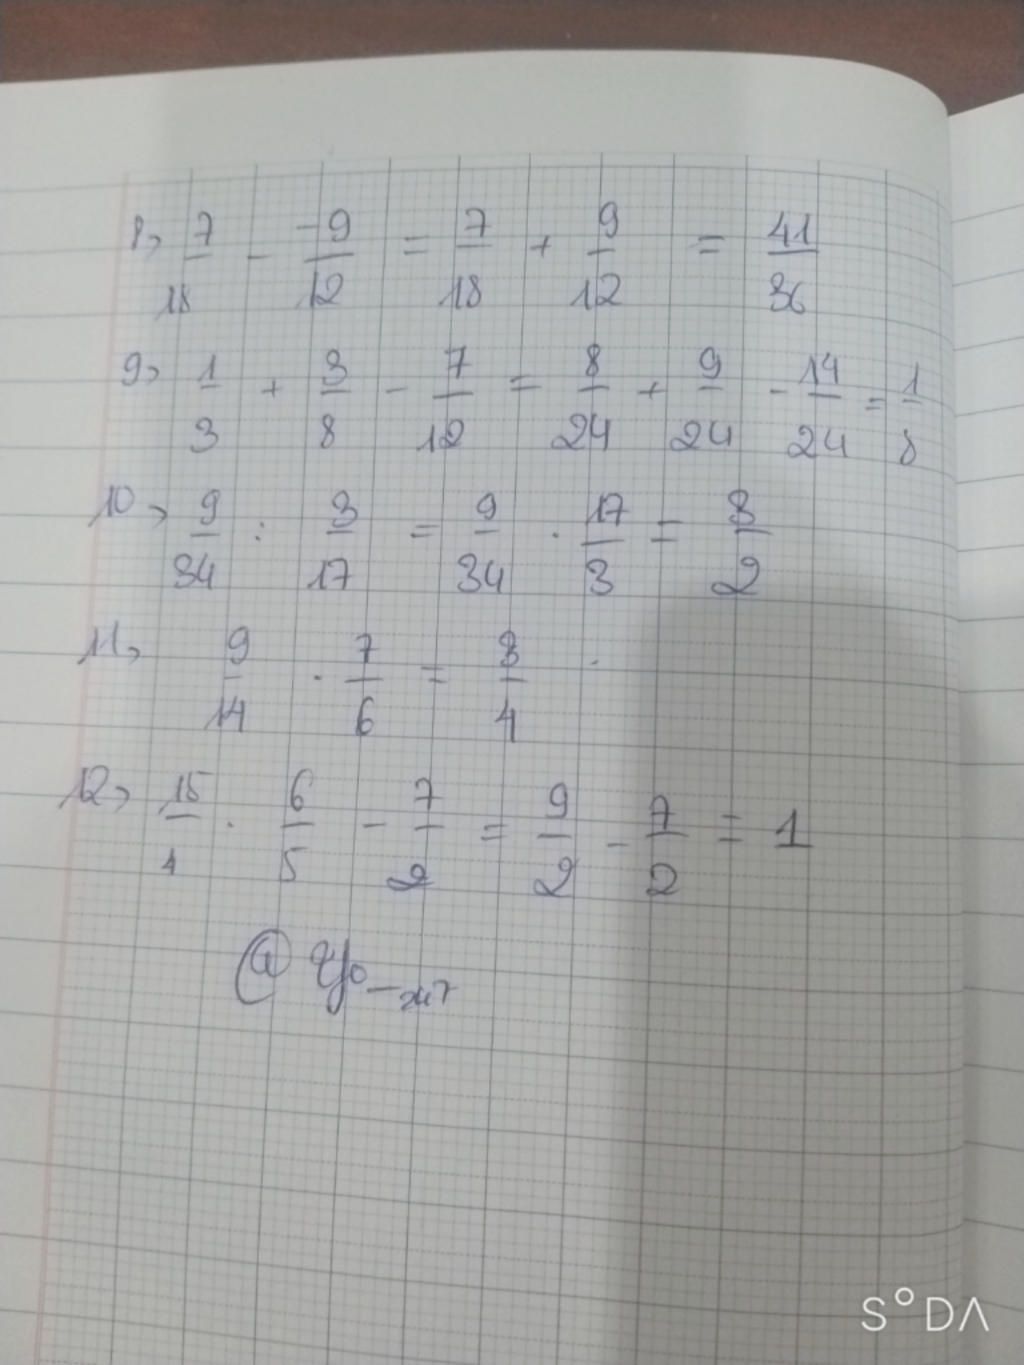 8, 7/18 - -9/12 = 7/18 + 9/12 = 41/36
9, 1/3 + 3/8 - 7/12 = 8/24 + 9/24 - 14/24 = 1/8
10, 9/34 : 3/17 = 9/34 . 17/3 = 3/2
11, 9/14 . 7/6 = 3/4
12, 15/4 . 6/5 - 7/2 = 9/2 - 7/2 = 1
S°DΛ